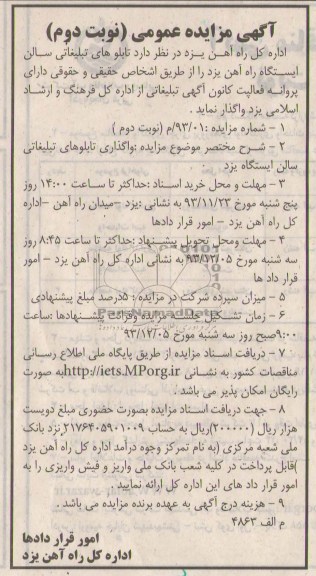 آگهی مزایده عمومی (نوبت دوم)
اداره کل راه آهن یزد در نظر دارد تابلو های تبلیغاتی سالن
ایستگاه راه آهن یزد را از طریق اشخاص حقیقی و حقوقی دارای
پروانه فعالیت کانون آگهی تبلیغاتی از اداره کل فرهنگ و ارشاد
اسلامی یزد واگذار نماید .
۱ – شماره مزایده :۹۳/۰۱/م (نوبت دوم )
۲ – شرح مختصر موضوع مزایده :واگذاری تابلوهای تبلیغاتی
سالن ایستگاه یزد
۳ – مهلت و محل خرید اسناد :حداکثر تا ساعت ۱۴:۰۰ روز
پنج شنبه مورخ ۹۳/۱۱/۲۳ به نشانی :یزد –میدان راه آهن –اداره
کل راه آهن یزد – امور قرار دادها
۴ – مهلت ومحل تحویل پیشنهاد :حداکثر تا ساعت ۸:۴۵ روز
سه شنبه مورخ ۹۳/۱۲/۰۵ به نشانی اداره کل راه آهن یزد – امور
قرار داد ها
۵ – میزان سپرده شرکت در مزایده : ۵درصد مبلغ پیشنهادی
۶ – زمان تشکیل جلسه مزایده وقرائت پیشنهادها :ساعت
۹:۰۰صبح روز سه شنبه مورخ ۹۳/۱۲/۰۵
۷ – دریافت اسناد مزایده از طریق پایگاه ملی اطلاع رسانی
مناقصات کشور به نشانی http://iets.MPorg.irبه صورت
رایگان امکان پذیر می باشد .
۸ – جهت دریافت اسناد مزایده بصورت حضوری مبلغ دویست
هزار ریال (۲۰۰۰۰۰)ریال به حساب ۲۱۷۶۴۰۵۹۰۱۰۰۹ نزد بانک
ملی شعبه مرکزی (به نام تمرکز وجوه درآمد اداره کل راه آهن یزد
)قابل پرداخت در کلیه شعب بانک ملی واریز و فیش واریزی را به
امور قرار داد های این اداره کل ارائه نمایید .
۹ – هزینه درج آگهی به عهده برنده مزایده می باشد .
م الف ۴۸۶۳
امور قرار دادها
اداره کل راه آهن یزد